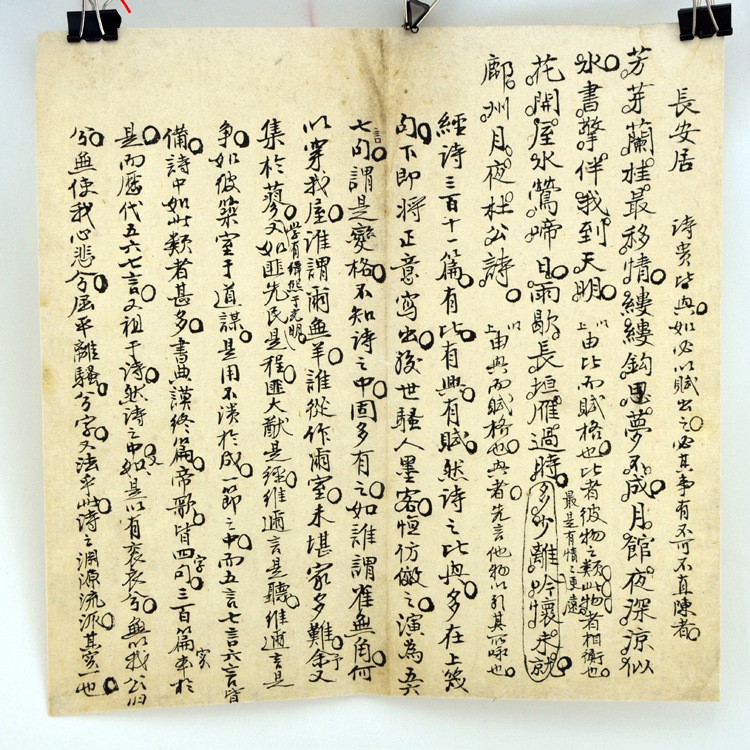 長安居　詩貴皆興如必以賦出之必其事有不可不直陳者
芳芽蘭桂最移情縷縷鈎思夢不成月館夜深涼似
水書擎伴我到天明　以上由比而賦格也比者彼物之類此物者相衡也
花開屋水鶯啼日雨歇長垣雁過時多少離吟懷未就
最是有情之更遠
鄜州月夜杜公詩　以上由興而賦格也興者先言他物以引其所咏也
經詩三百十一篇有比有興有賦然詩之比興多在上幾
句下即將正意寫出後世騷人墨客恒仿儆之演為五六
七言句謂是變格不知詩之中固多有之如誰謂雀無角何
以穿我屋誰謂爾無羊誰從作爾室未堪家多難余予又
集於蓼又如匪先民是程匪大猷是經維邇言是聽維邇言是
學有緝熙于光明
爭如彼築室于道謀是用不潰於成一節之中而五言七言六言皆
備詩中如此類者甚多書典謨終篇帝歌皆四字句三百篇率於
是而歷代五六七言又祖于詩然詩之中如又是以有袞衣兮無以我公歸
兮無使我心悲兮屈平離騷兮字又法乎此詩之淵源流派其實一也